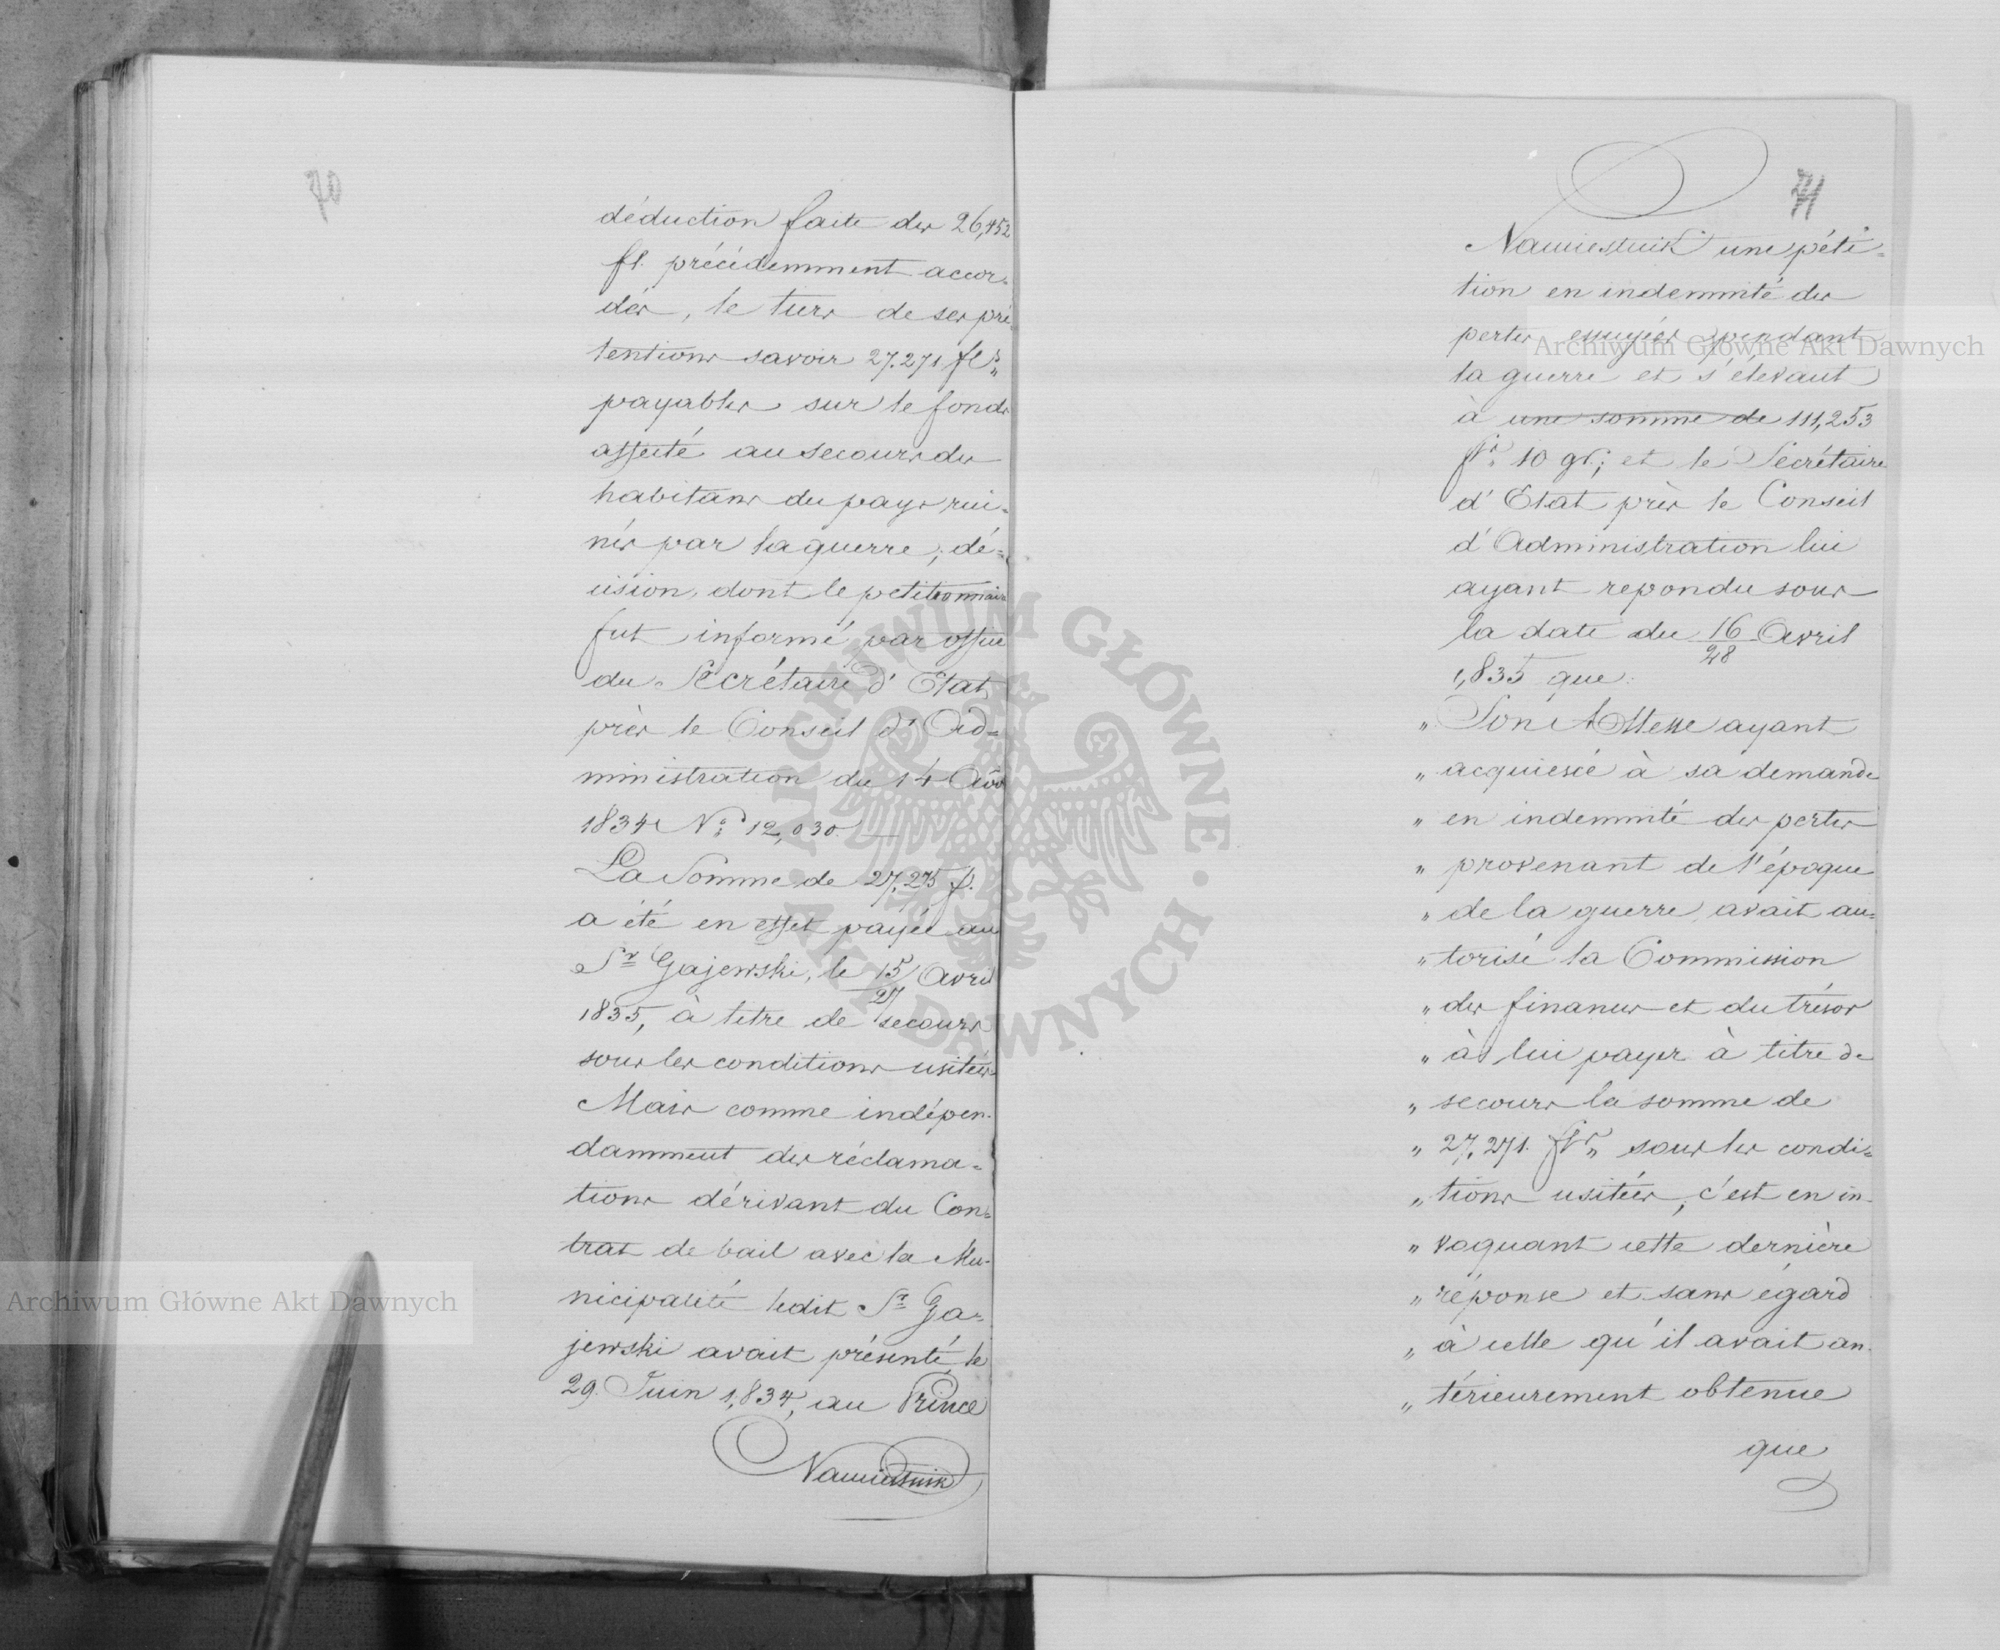 70
déduction faite des 26,452
fl. précédemment accor-
dés, le tiers de ses pré-
tentions savoir 27.271 fls
payables sur le fonds
affecté au secours des
habitans du pays rui-
nés par la guerre; dé-
cision, dont le petitionnaire
fut informé par office
du Secrétaire d'Etat
près le Conseil d'Ad-
ministration du 14 Août
1834 No 12,030.
La Somme de 27,275 f.
a été en effet payée au
Sr Gajewski, le 15/27 Avril
1835, à titre de secours
sous les conditions usitées.
Mais comme indépen-
damment des réclama-
tions dérivant du Con-
trat de bail avec la Mu-
nicipalité ledit Sr Ga-
jewski avait présenté, le
29. Juin 1,834, au Prince
Namiestnik
71
Namiestnik une péti-
tion en indemnité des
pertes essuyées pendant
la guerre et s'élevant
à une somme de 111,253
fls 10 gr.; et le Secrétaire
d'Etat près le Conseil
d'Administration lui
ayant repondu sous
la date du 16/28 Avril
1,835 que:
" Son Altesse ayant
" acquiescé à sa demande
" en indemnité des pertes
" provenant de l'époque
" de la guerre, avait au-
" torisé la Commission
" des finances et du trésor
" à lui payer à titre de
" secours la somme de
" 27,271. fls sous les condi-
" tions usitées, c'est en in-
" voquant cette dernière
" réponse et sans égard
" à celle qu'il avait an-
" térieurement obtenue
que
Archiwum Główne Akt Dawnych
Archiwum Główne Akt Dawnych
ARCHIWUM GŁÓWNE · AKT DAWNYCH ·